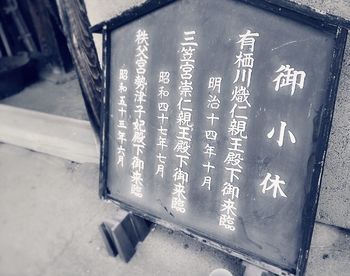 御小休
有栖川熾仁親王殿下御来臨
明治十四年十月
三笠宮崇仁親王殿下御来臨
昭和四十七年七月
秩父宮勢津子妃殿下御来臨
昭和五十三年六月